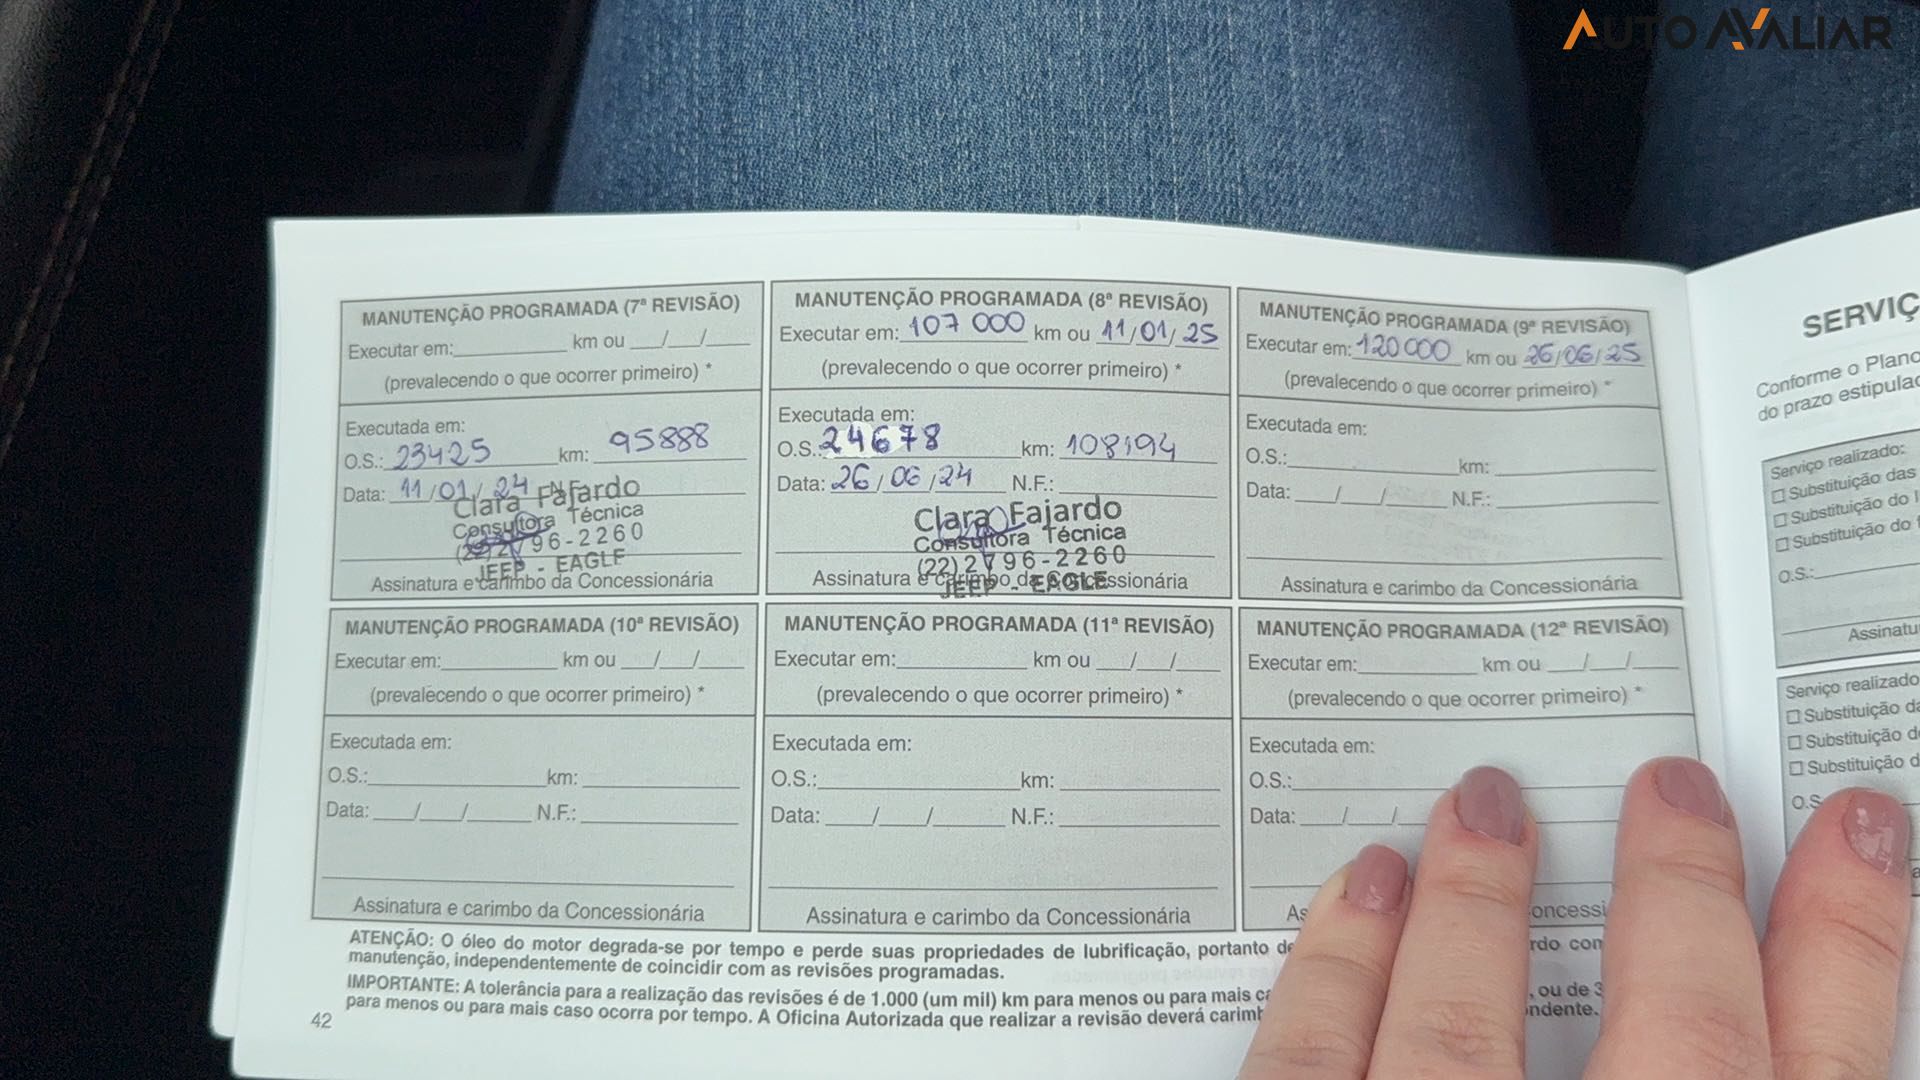 AUTO AVALIAR
MANUTENÇÃO PROGRAMADA (7ª REVISÃO)
Executar em:__________ km ou ___/___/___
(prevalecendo o que ocorrer primeiro) *
Executada em:
O.S.: 23425 km: 95888
Data: 11/01/24 N.F.
Clara Fajardo
Consultora Técnica
(22) 2796-2260
JEEP - EAGLE
Assinatura e carimbo da Concessionária
MANUTENÇÃO PROGRAMADA (8ª REVISÃO)
Executar em: 107 000 km ou 11/01/25
(prevalecendo o que ocorrer primeiro) *
Executada em:
O.S.: 24678 km: 108194
Data: 26/06/24 N.F.:
Clara Fajardo
Consultora Técnica
(22) 2796-2260
JEEP - EAGLE
Assinatura e carimbo da Concessionária
MANUTENÇÃO PROGRAMADA (9ª REVISÃO)
Executar em: 120 000 km ou 26/06/25
(prevalecendo o que ocorrer primeiro) *
Executada em:
O.S.:__________ km:__________
Data: ___/___/___ N.F.:__________
Assinatura e carimbo da Concessionária
MANUTENÇÃO PROGRAMADA (10ª REVISÃO)
Executar em:__________ km ou ___/___/___
(prevalecendo o que ocorrer primeiro) *
Executada em:
O.S.:__________ km:__________
Data: ___/___/___ N.F.:__________
Assinatura e carimbo da Concessionária
MANUTENÇÃO PROGRAMADA (11ª REVISÃO)
Executar em:__________ km ou ___/___/___
(prevalecendo o que ocorrer primeiro) *
Executada em:
O.S.:__________ km:__________
Data: ___/___/___ N.F.:__________
Assinatura e carimbo da Concessionária
MANUTENÇÃO PROGRAMADA (12ª REVISÃO)
Executar em:__________ km ou ___/___/___
(prevalecendo o que ocorrer primeiro) *
Executada em:
O.S.:__________
Data: ___/___/___
As oncessi
ATENÇÃO: O óleo do motor degrada-se por tempo e perde suas propriedades de lubrificação, portanto de rdo con
manutenção, independentemente de coincidir com as revisões programadas.
IMPORTANTE: A tolerância para a realização das revisões é de 1.000 (um mil) km para menos ou para mais ca , ou de 3
para menos ou para mais caso ocorra por tempo. A Oficina Autorizada que realizar a revisão deverá carimb ndente.
42
SERVIÇ
Conforme o Plano
do prazo estipulad
Serviço realizado:
☐ Substituição das
☐ Substituição do
☐ Substituição do
O.S.:__________
Assinatu
Serviço realizado
☐ Substituição da
☐ Substituição d
☐ Substituição d
O.S.